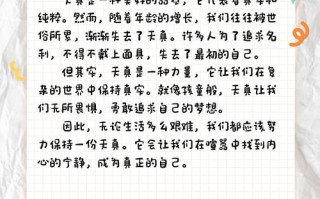 天真是一种美好的，它代表着真和
纯粹。然而，随着年龄的增长，我们往往被世
俗所累，渐渐失去了天真。许多人为了追求名
利，不得不戴上面具，失去了最初的自己。
但其实，天真是一种力量，它让我们在复
杂的世界中保持真实。就像孩童般，天真让我
们无所畏惧，勇敢追求自己的梦想。
因此，无论生活多么艰难，我们都应该努
力保持一份天真。它会让我们在喧嚣中找到内
心的宁静，成为真正的自己。